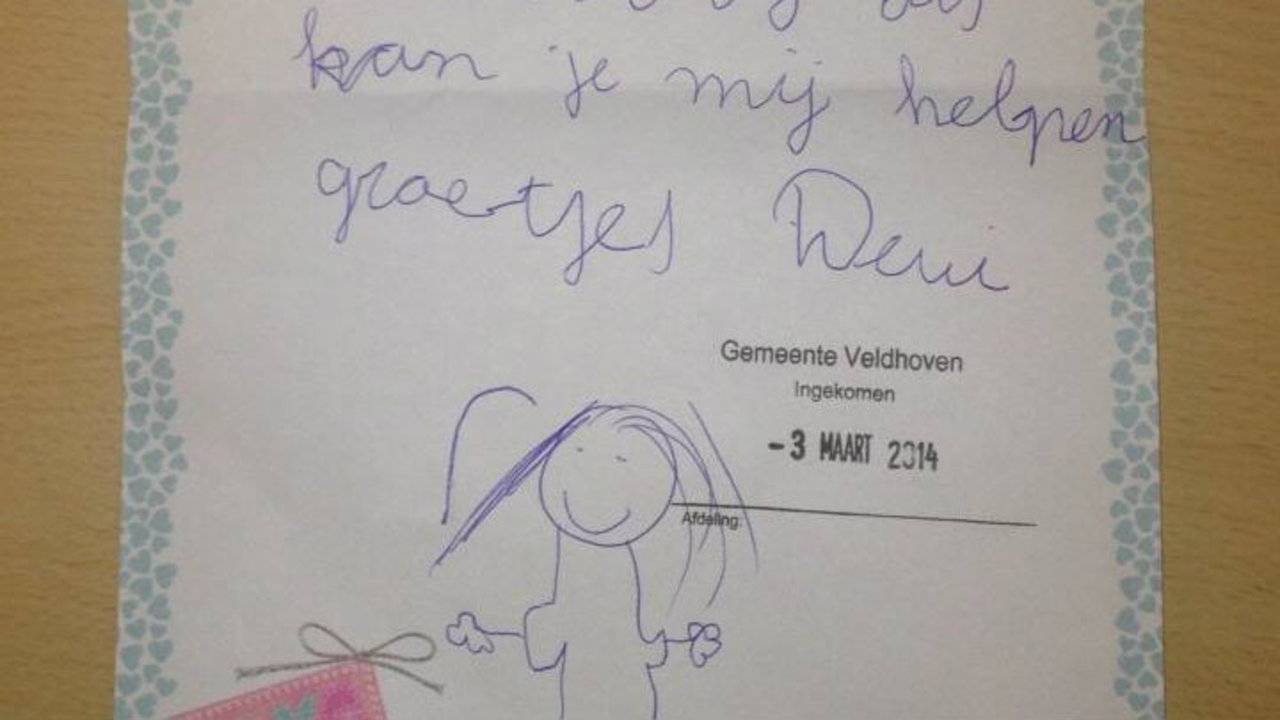 kan je mij helpen
groetjes
Gemeente Veldhoven
Ingekomen
-3 MAART 2014
Afdeling: